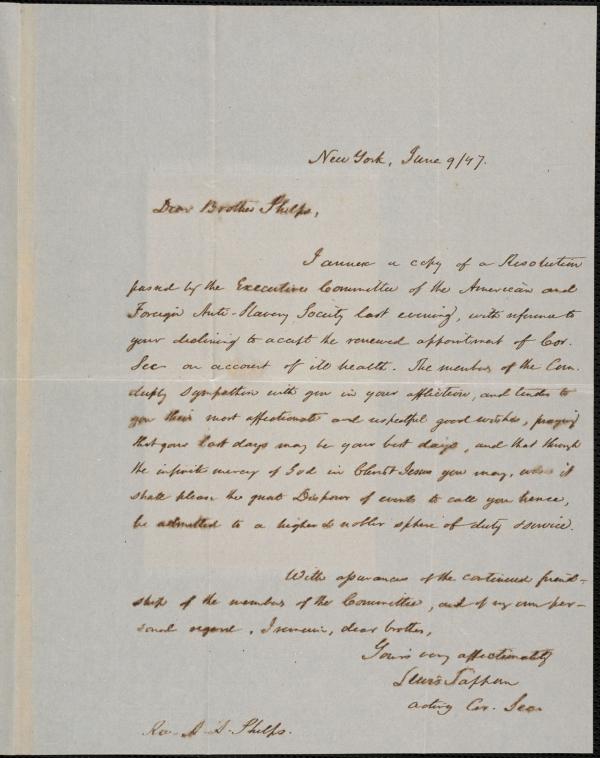 New York, June 9/47.
Dear Brother Phelps,
I annex a copy of a Resolution
passed by the Executive Committee of the American and
Foreign Anti-Slavery Society last evening, with reference to
your declining to accept the renewed appointment of Cor.
Sec on account of ill health. The members of the Com.
deeply sympathise with you in your affliction, and tender to
you their most affectionate and respectful good wishes, praying
that your last days may be your best days, and that through
the infinite mercy of God in Christ Jesus you may, when it
shall please the great Disposer of events to call you hence,
be admitted to a higher & nobler sphere of duty & service.
With assurances of the continued friend-
ship of the members of the Committee, and of my own per-
sonal regard, I remain, dear brother,
Yours very affectionately
Lewis Tappan
acting Cor. Sec.
Rev. A. A. Phelps.